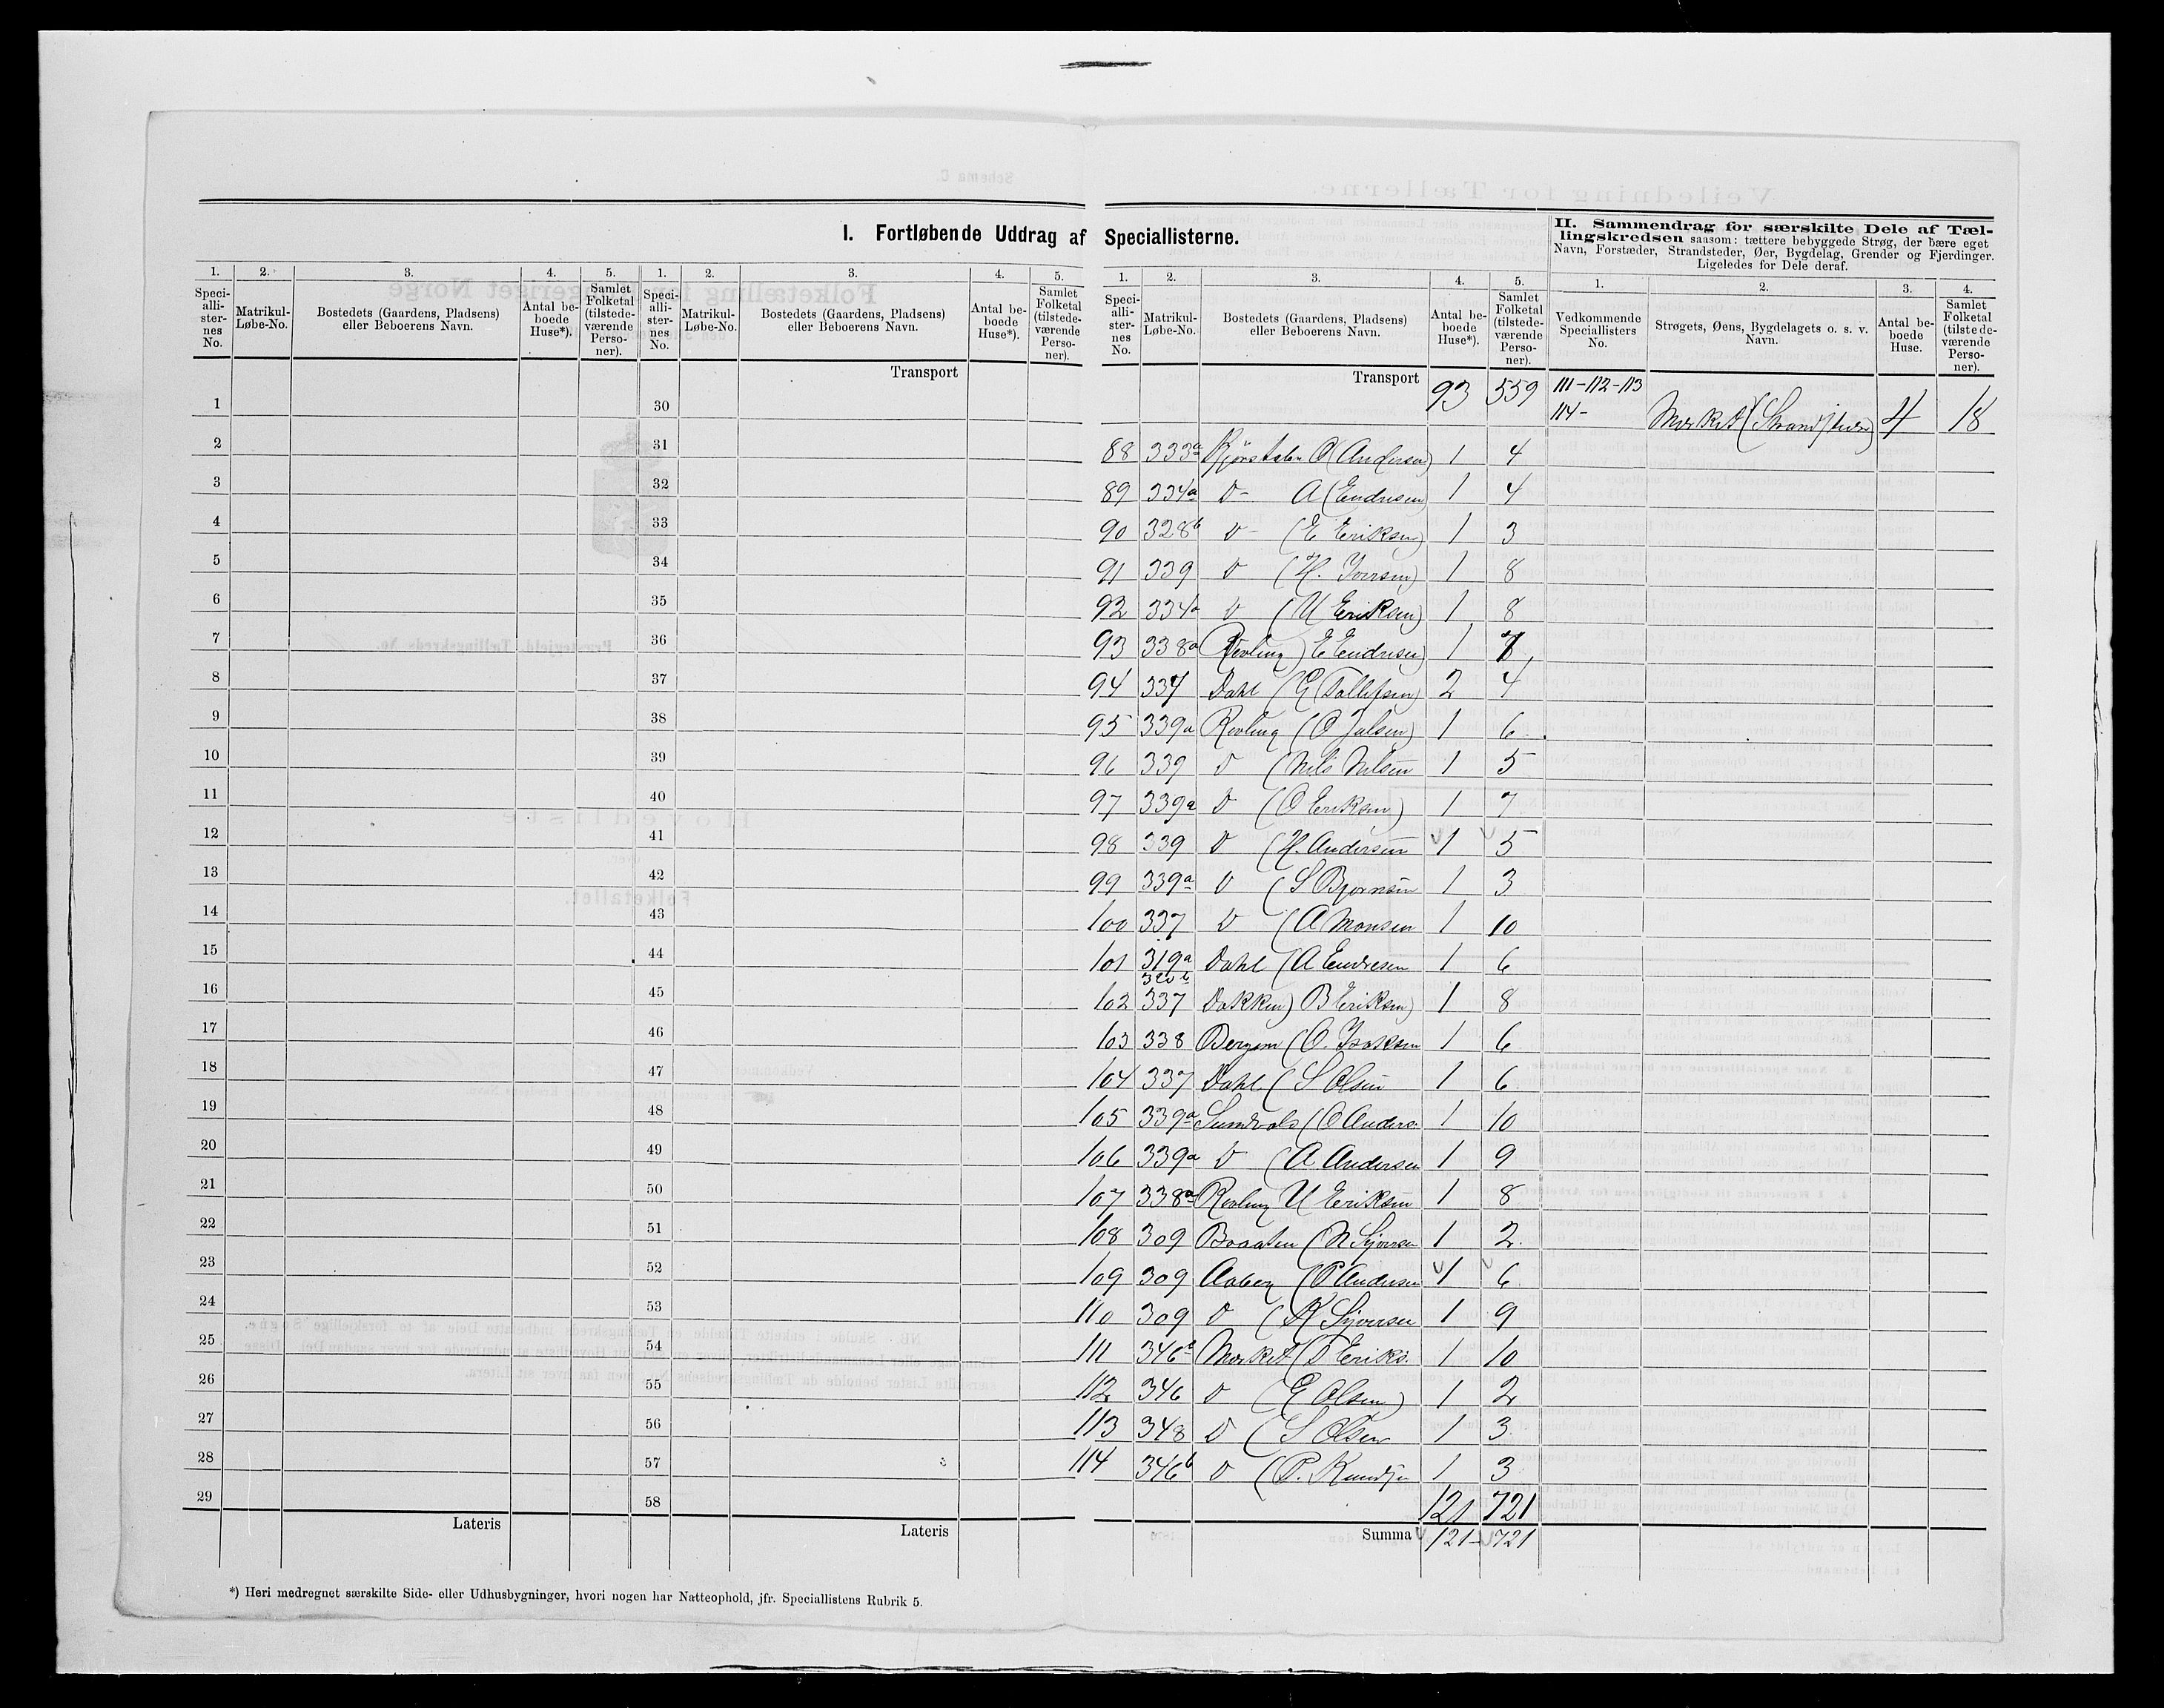 I. Fortløbende Uddrag af Speciallisterne.
II. Sammendrag for særskilte Dele af Tæl-
lingskredsen saasom: tættere bebyggede Strøg, der bære eget
Navn, Forstæder, Strandsteder, Øer, Bygdelag, Grender og Fjerdinger.
Ligeledes for Dele deraf.
1. 2. 3. 4. 5. 1. 2. 3. 4. 5. 1. 2. 3. 4. 5. 1. 2. 3. 4.
Speci-alli-ster-nes No. Matrikul-Løbe-No. Bostedets (Gaardens, Pladsens) eller Beboerens Navn. Antal be-boede Huse*). Samlet Folketal (tilstede-værende Perso-ner).
Speci-alli-ster-nes No. Matrikul-Løbe-No. Bostedets (Gaardens, Pladsens) eller Beboerens Navn. Antal be-boede Huse*). Samlet Folketal (tilstede-værende Perso-ner).
Speci-alli-ster-nes No. Matrikul-Løbe-No. Bostedets (Gaardens, Pladsens) eller Beboerens Navn. Antal be-boede Huse*). Samlet Folketal (tilstede-værende Perso-ner).
Vedkommende Speciallisters No. Strøgets, Øens, Bygdelagets o. s. v. Navn. Antal be-boede Huse. Samlet Folketal (tilstede-værende Perso-ner).
Transport
Transport 93 559 111-112-113
1 30 114- 4 18
2 31 88 333a (Andersen) 1 4
3 32 89 334a D- A (Endresen 1 4
4 33 90 328b D- (E Eriksen) 1 3
5 34 91 339 D (H. Iversen) 1 8
6 35 92 334a D (U Eriksen) 1 8
7 36 93 338a E Endresen) 1 7
8 37 94 337 Dahl (G Tollefsen) 2 4
9 38 95 339a Revling (O Julsen) 1 6
10 39 96 339 D (Nils Nilsen 1 5
11 40 97 339a D (O Eriksen) 1 7
12 41 98 339 D (H. Andersen 1 5
13 42 99 339a D (S Bjørnsen 1 3
14 43 100 337 D (A Monsen 1 10
15 44 101 319a Dahl (A Endresen 1 6
320b
16 45 102 337 Dokken) B Eriksen) 1 8
17 46 103 338 (O. Isaksen 1 6
18 47 104 337 Dahl (S Olsen 1 6
19 48 105 339a (O Anders. 1 10
20 49 106 339a D (A Andersen 1 9
21 50 107 338a Revling U Eriksen 1 8
22 51 108 309 Braaten (N Syversen 1 2
23 52 109 309 Aaberg (P Andersen 1 6
24 53 110 309 D (K Syversen 1 9
25 54 111 346a 1 10
26 55 112 346 D (E Olsen) 1 2
27 56 113 348 D (S Olsen 1 3
28 57 114 346b D 1 3
29 58 121 721
Lateris Lateris Summa 121 - 721
*) Heri medregnet særskilte Side- eller Udhusbygninger, hvori nogen har Natteophold, jfr. Speciallistens Rubrik 5.